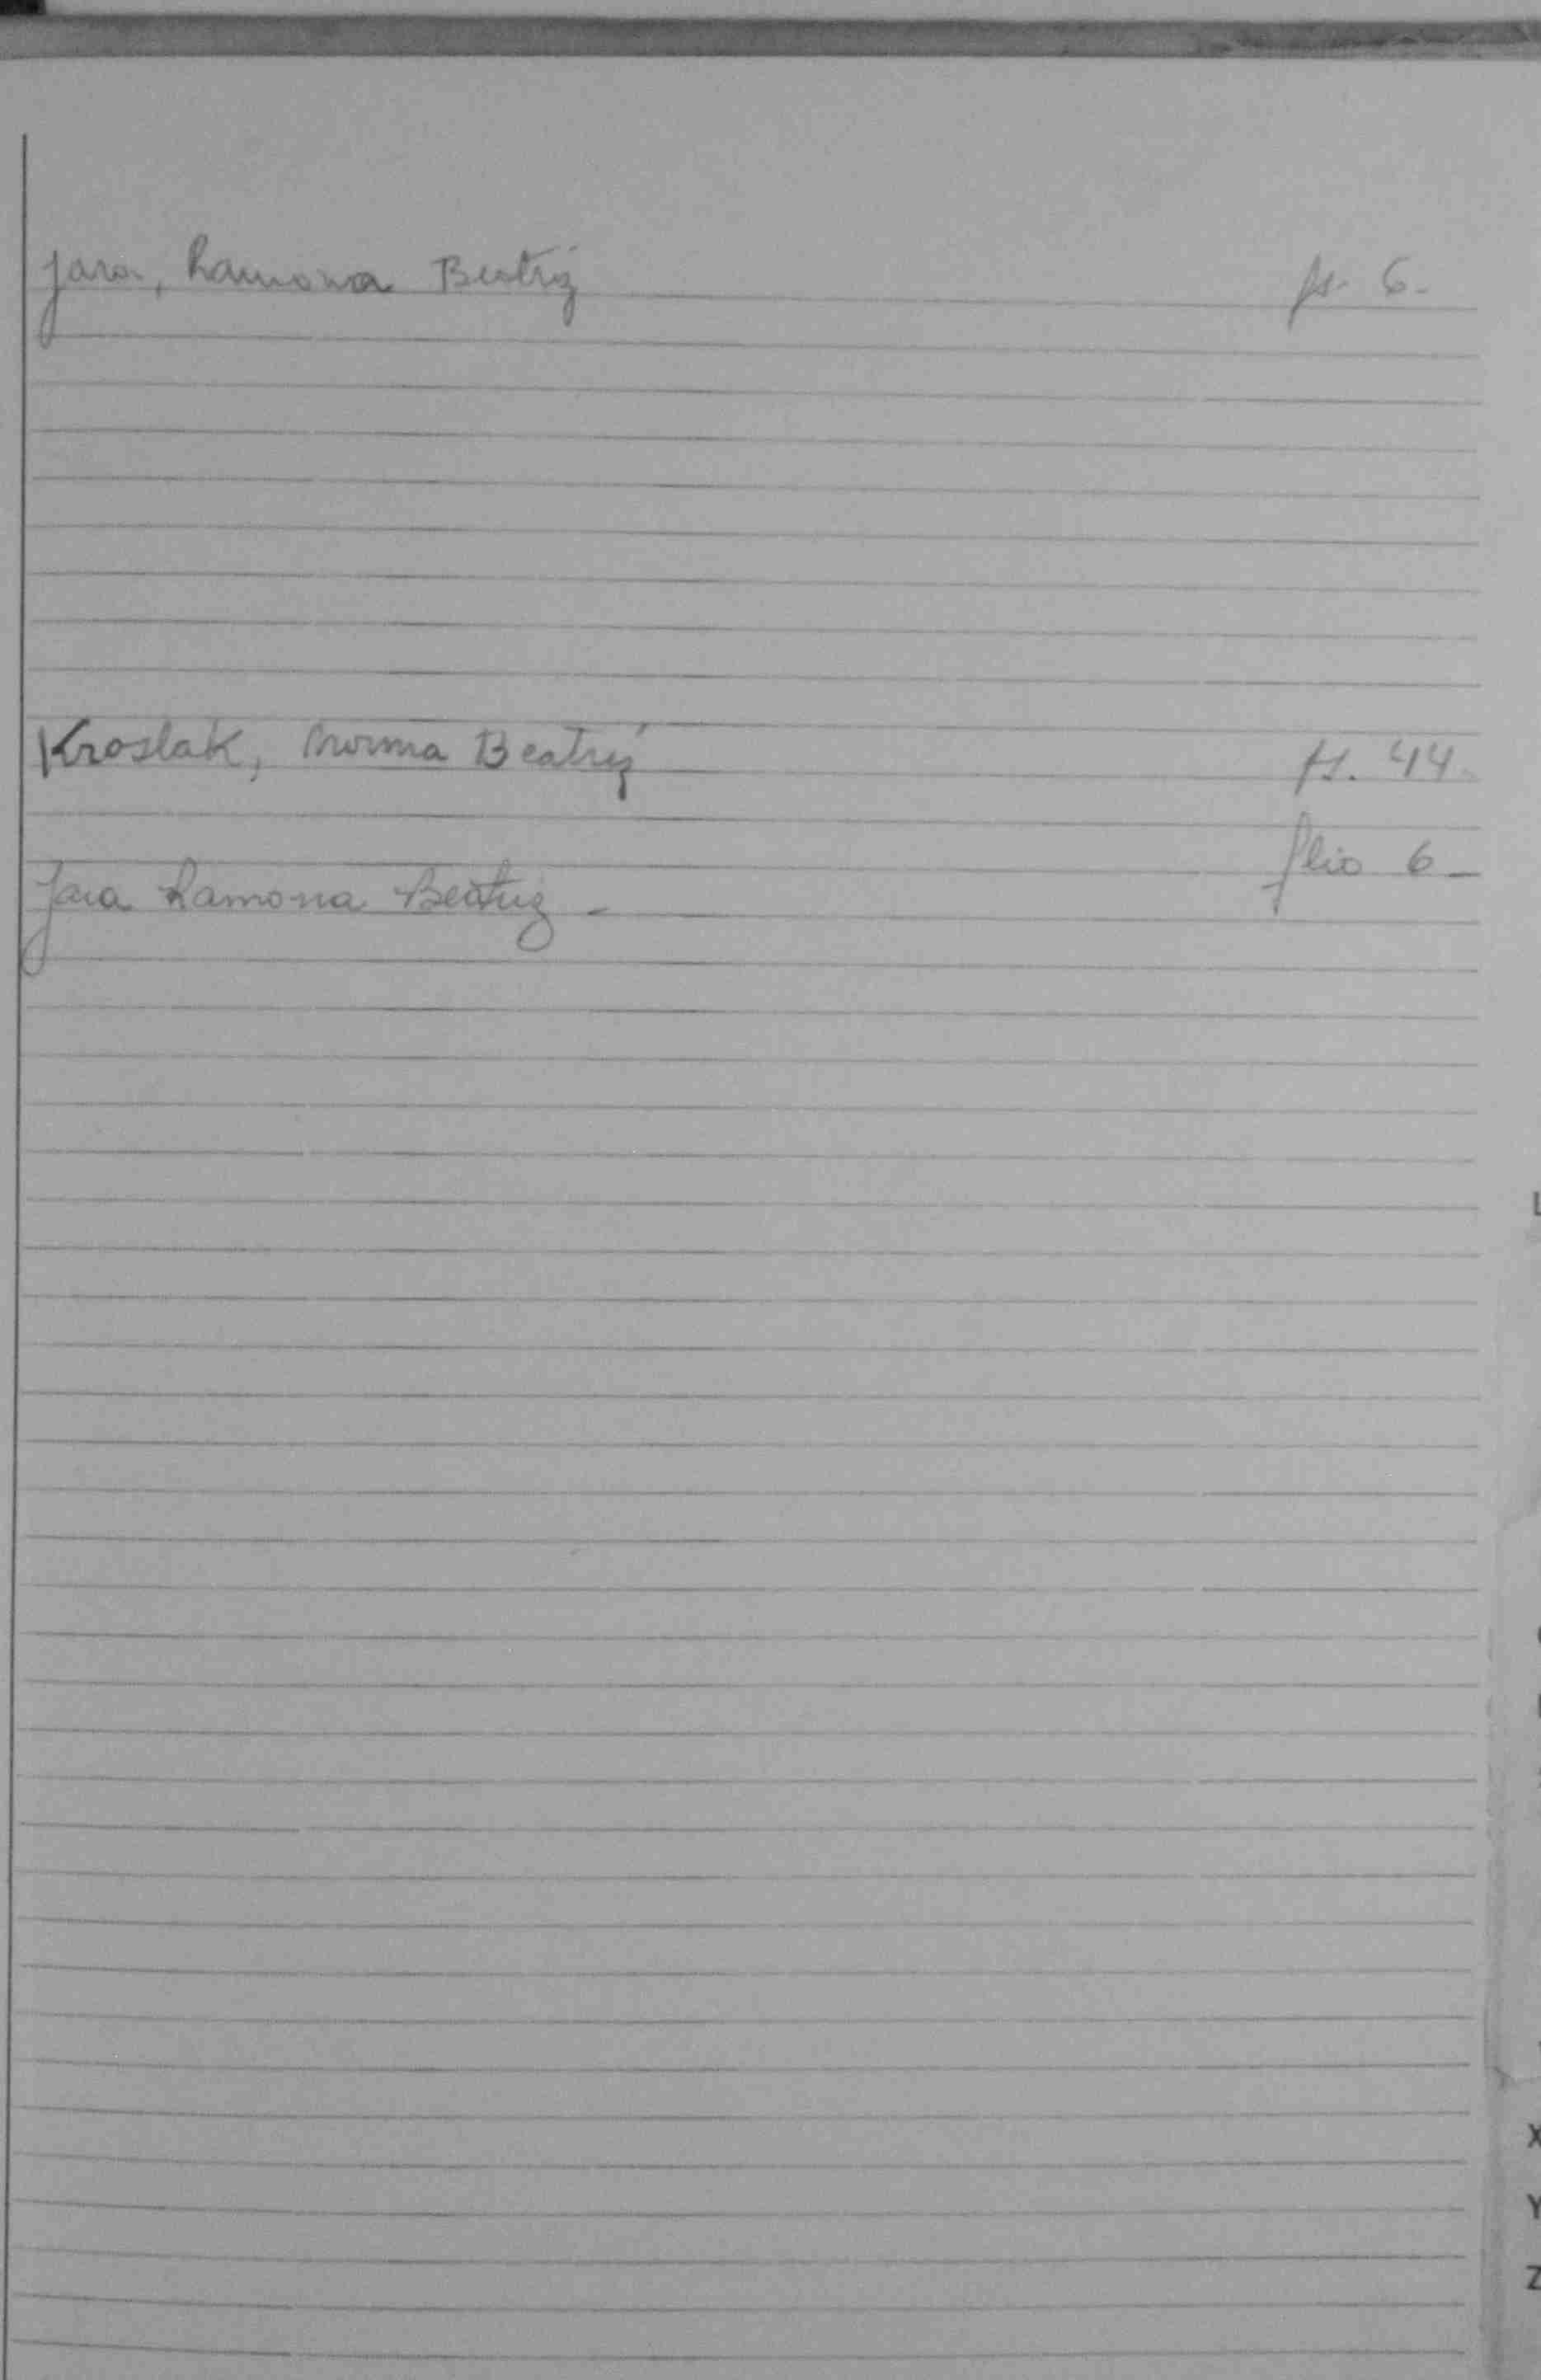 Jara, Ramona Beatriz fs. 6-
Kroslak, Norma Beatriz fs. 44-
folio 6-
Jara Ramona Beatriz -
L
X
Y
Z